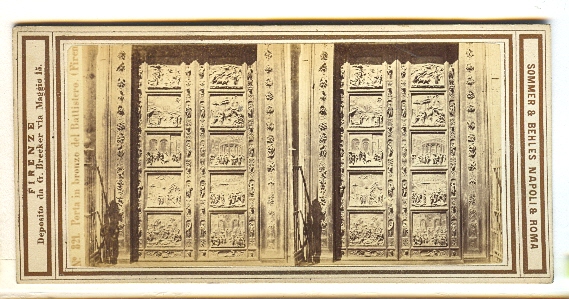 FIRENZE
Deposito da G. Brecker via Maggio 15.
No. 821. Porta in bronzo del Battistero. (Firen
SOMMER & BEHLES NAPOLI & ROMA